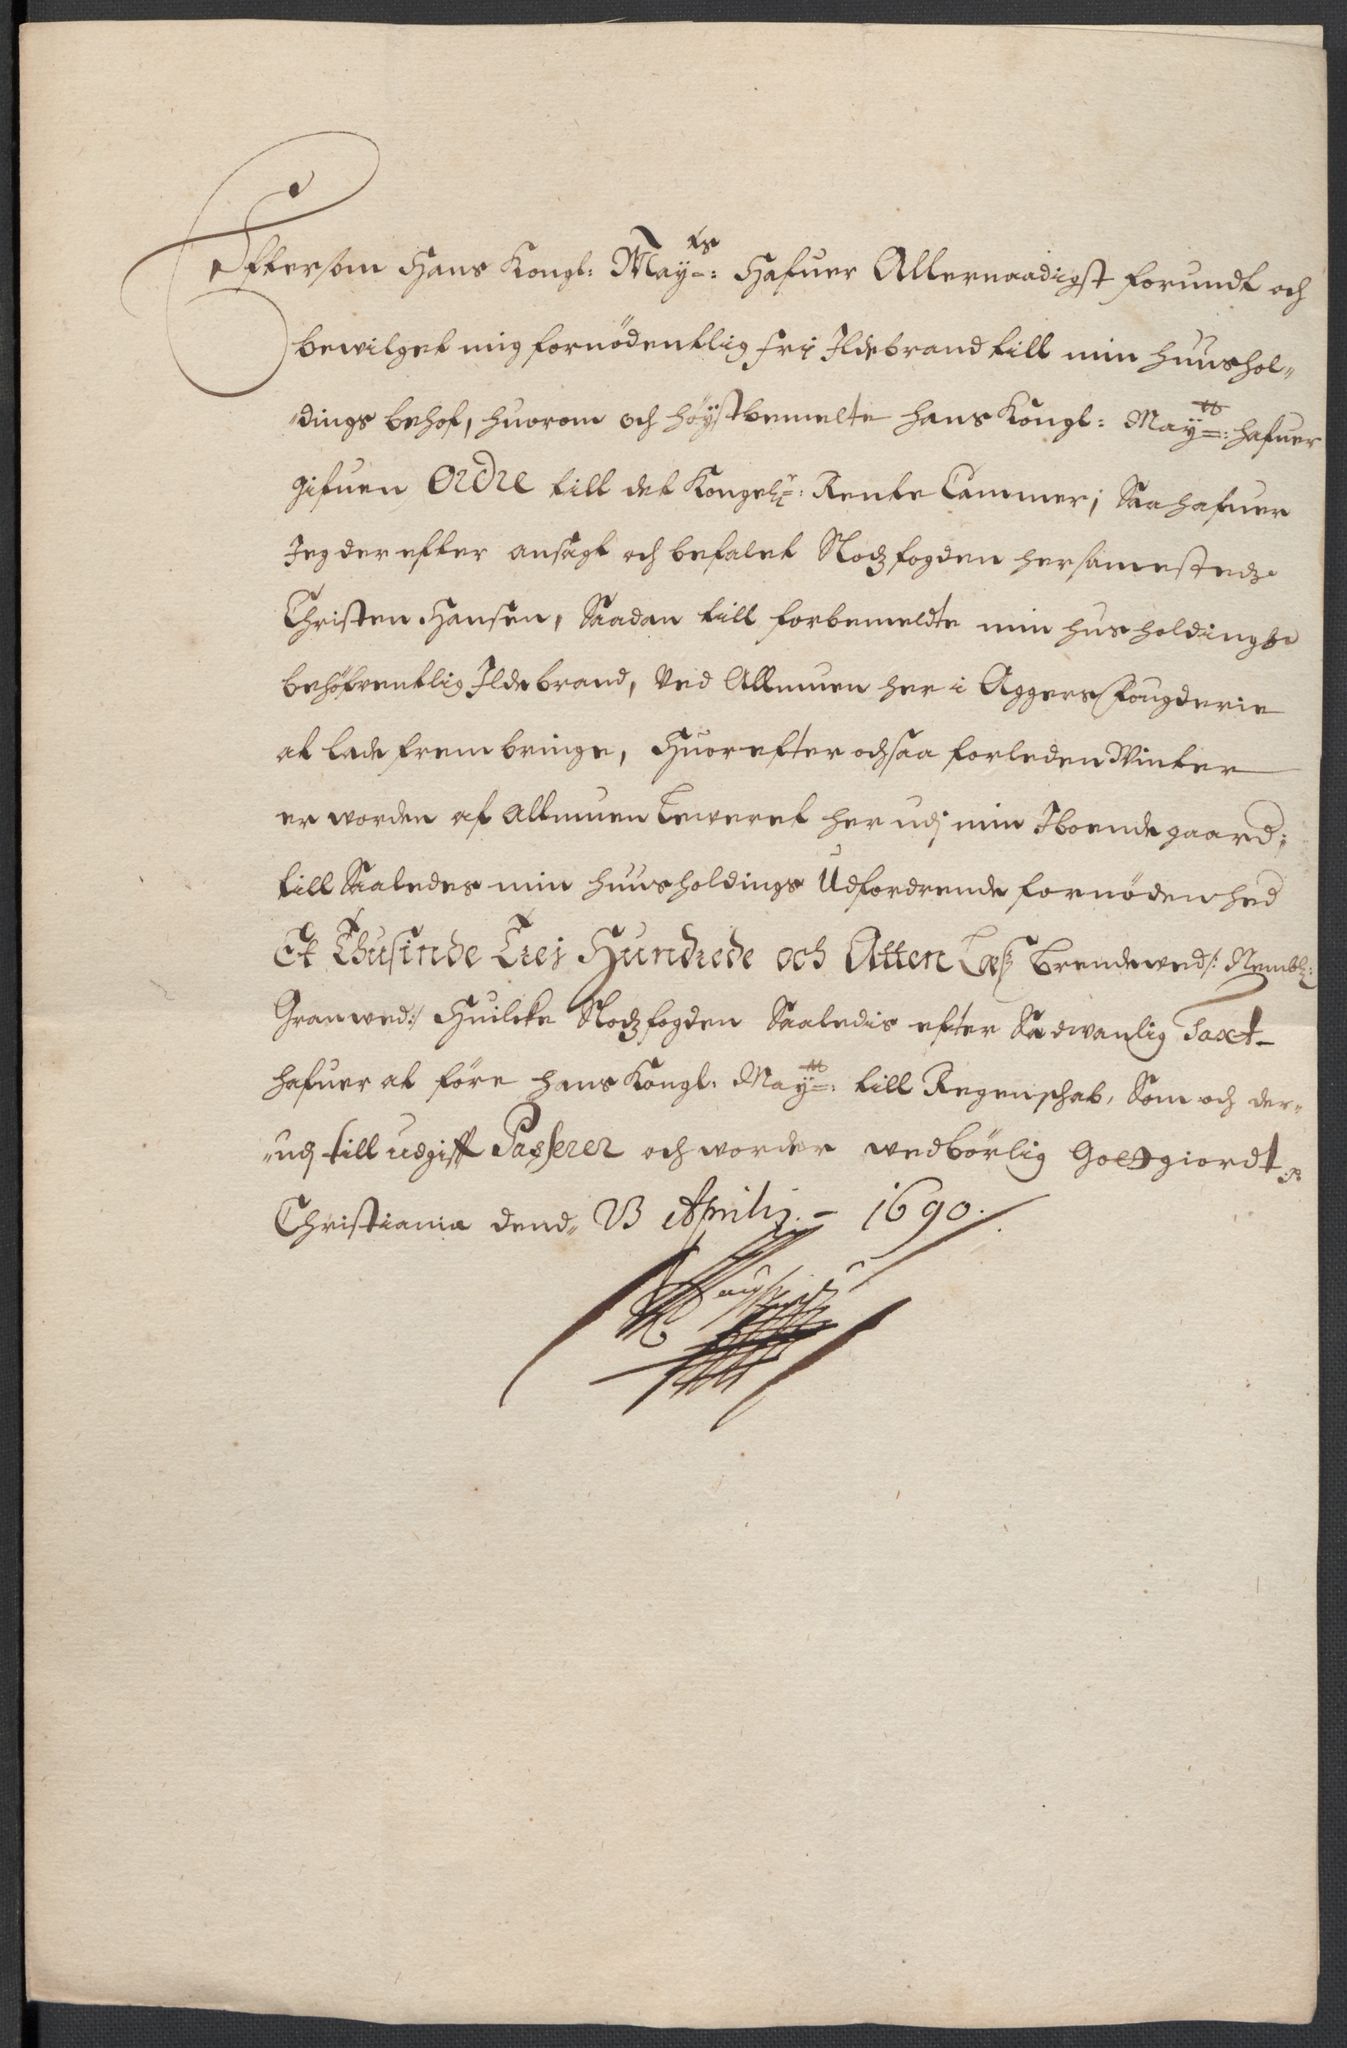 Effterſom Hans Kongl: Mayts: Hafuer Allernaadigſt forundt och
bewilget mig fornödentlig frij Ildebrand till min huushol„
„dings behof, huorom och höÿſtbemelte hans Kongl: Maytt: hafuer
gifuen Ordre till det Kongel: Rente Cammer; Saa hafuer
Jeg der efter anſagt och befalet Slodzfogden herſammeſtedz
Chriſten Hanſen, Saadan till forbemeldte min husholdings
behöfventlig Ildebrand, Ved Allmuen her i Aggers Fougderie
at lade frembringe, Huorefter ochſaa forleden Winter
er worden af Allmuen Leweret her udj min Iboende gaard;
till Saaledes min huusholdings Udfordrende fornödenhed
Et Thuſinde Trej Hundrede och Atten Læſz brendewed/: Nembl:
Granwed:/ Huilcke Slodzfogden Saaledis efter Sædwanlig Taxt
hafuer at före hans Kongl. Maytt: till Regenſchab, Som och der„
„udj till udgifft Paſſerer och worder wedbörlig Godtgiordt
Chriſtiania dend„ 23 Aprilij – 1690.